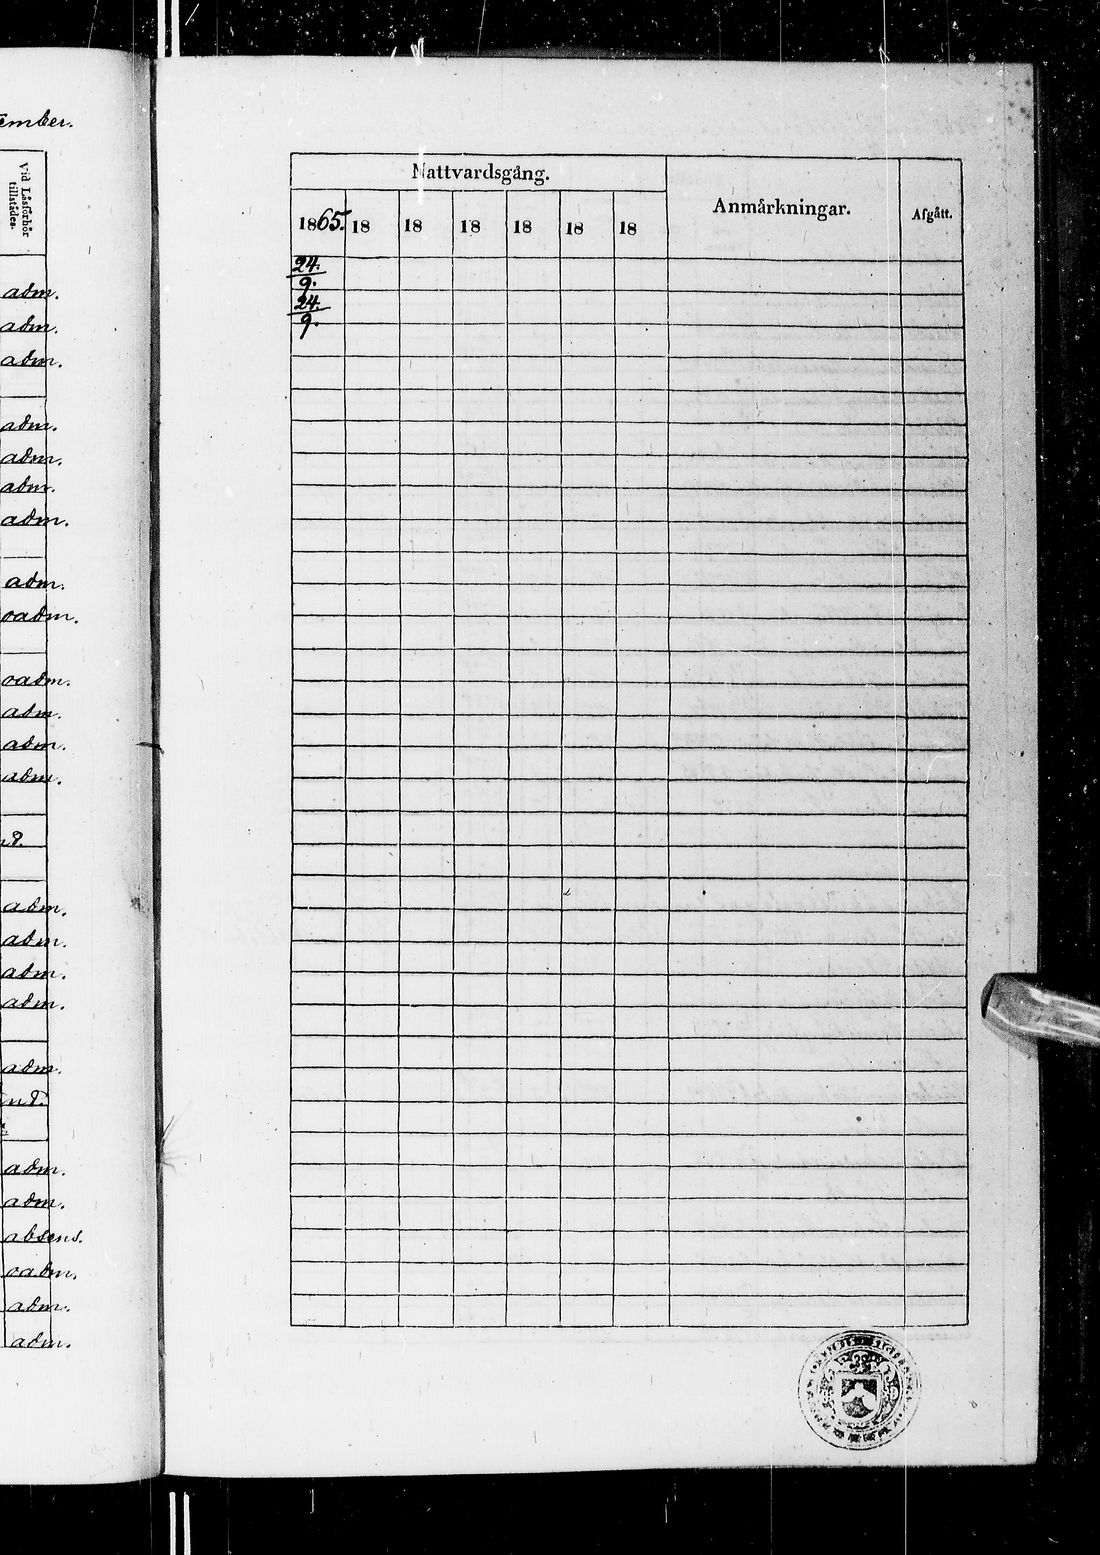 ember.
Vid Läsförhör
tillstädes.
adm.
adm.
adm.
adm.
adm.
adm.
adm.
adm.
oadm.
oadm.
adm.
adm.
adm.
adm.
adm.
adm.
adm.
adm.
adm.
adm.
absens.
oadm.
adm.
adm.
Nattvardsgång.
Anmärkningar.
Afgått.
1865. 18 18 18 18 18 18
24.
9.
24.
9.